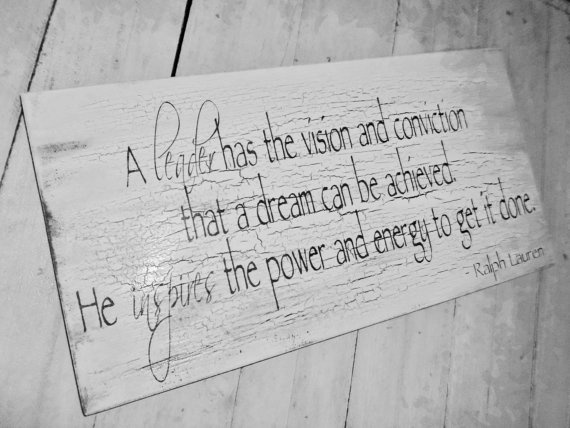 A leader has the vision and conviction
that a dream can be achieved.
He inspires the power and energy to get it done.
- Ralph Lauren